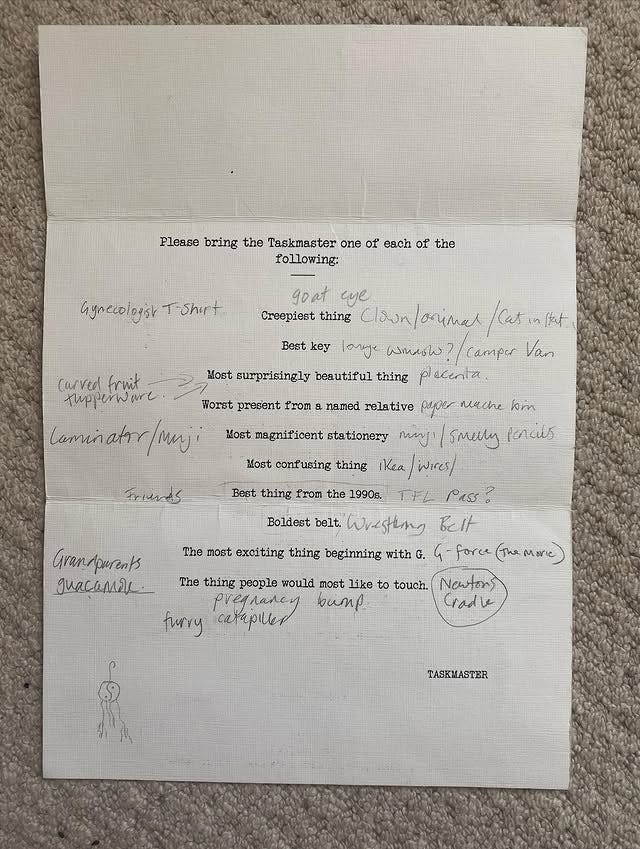 Please bring the Taskmaster one of each of the
following:
goat eye
Gynecologist T-Shirt
Creepiest thing Clown/animal/Cat in Hat
Best key large window?/camper Van
Most surprisingly beautiful thing placenta.
curved fruit
tupperware.
Worst present from a named relative paper mache
Laminator/Muji Most magnificent stationery muji/smelly pencils
Most confusing thing ikea/wires/
Friends Best thing from the 1990s. TFL Pass?
Boldest belt, Wrestling Belt
Grandparents The most exciting thing beginning with G. G-force (The Movie)
guacamole. The thing people would most like to touch. Newtons
Cradle
pregnancy bump
furry catapiller
TASKMASTER